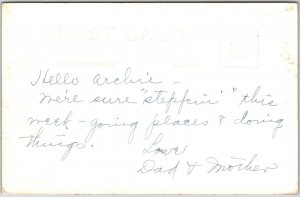 POST CARD
Hello Archie -
We're sure "steppin'" this
week - going places & doing
things.
Love
Dad & Mother